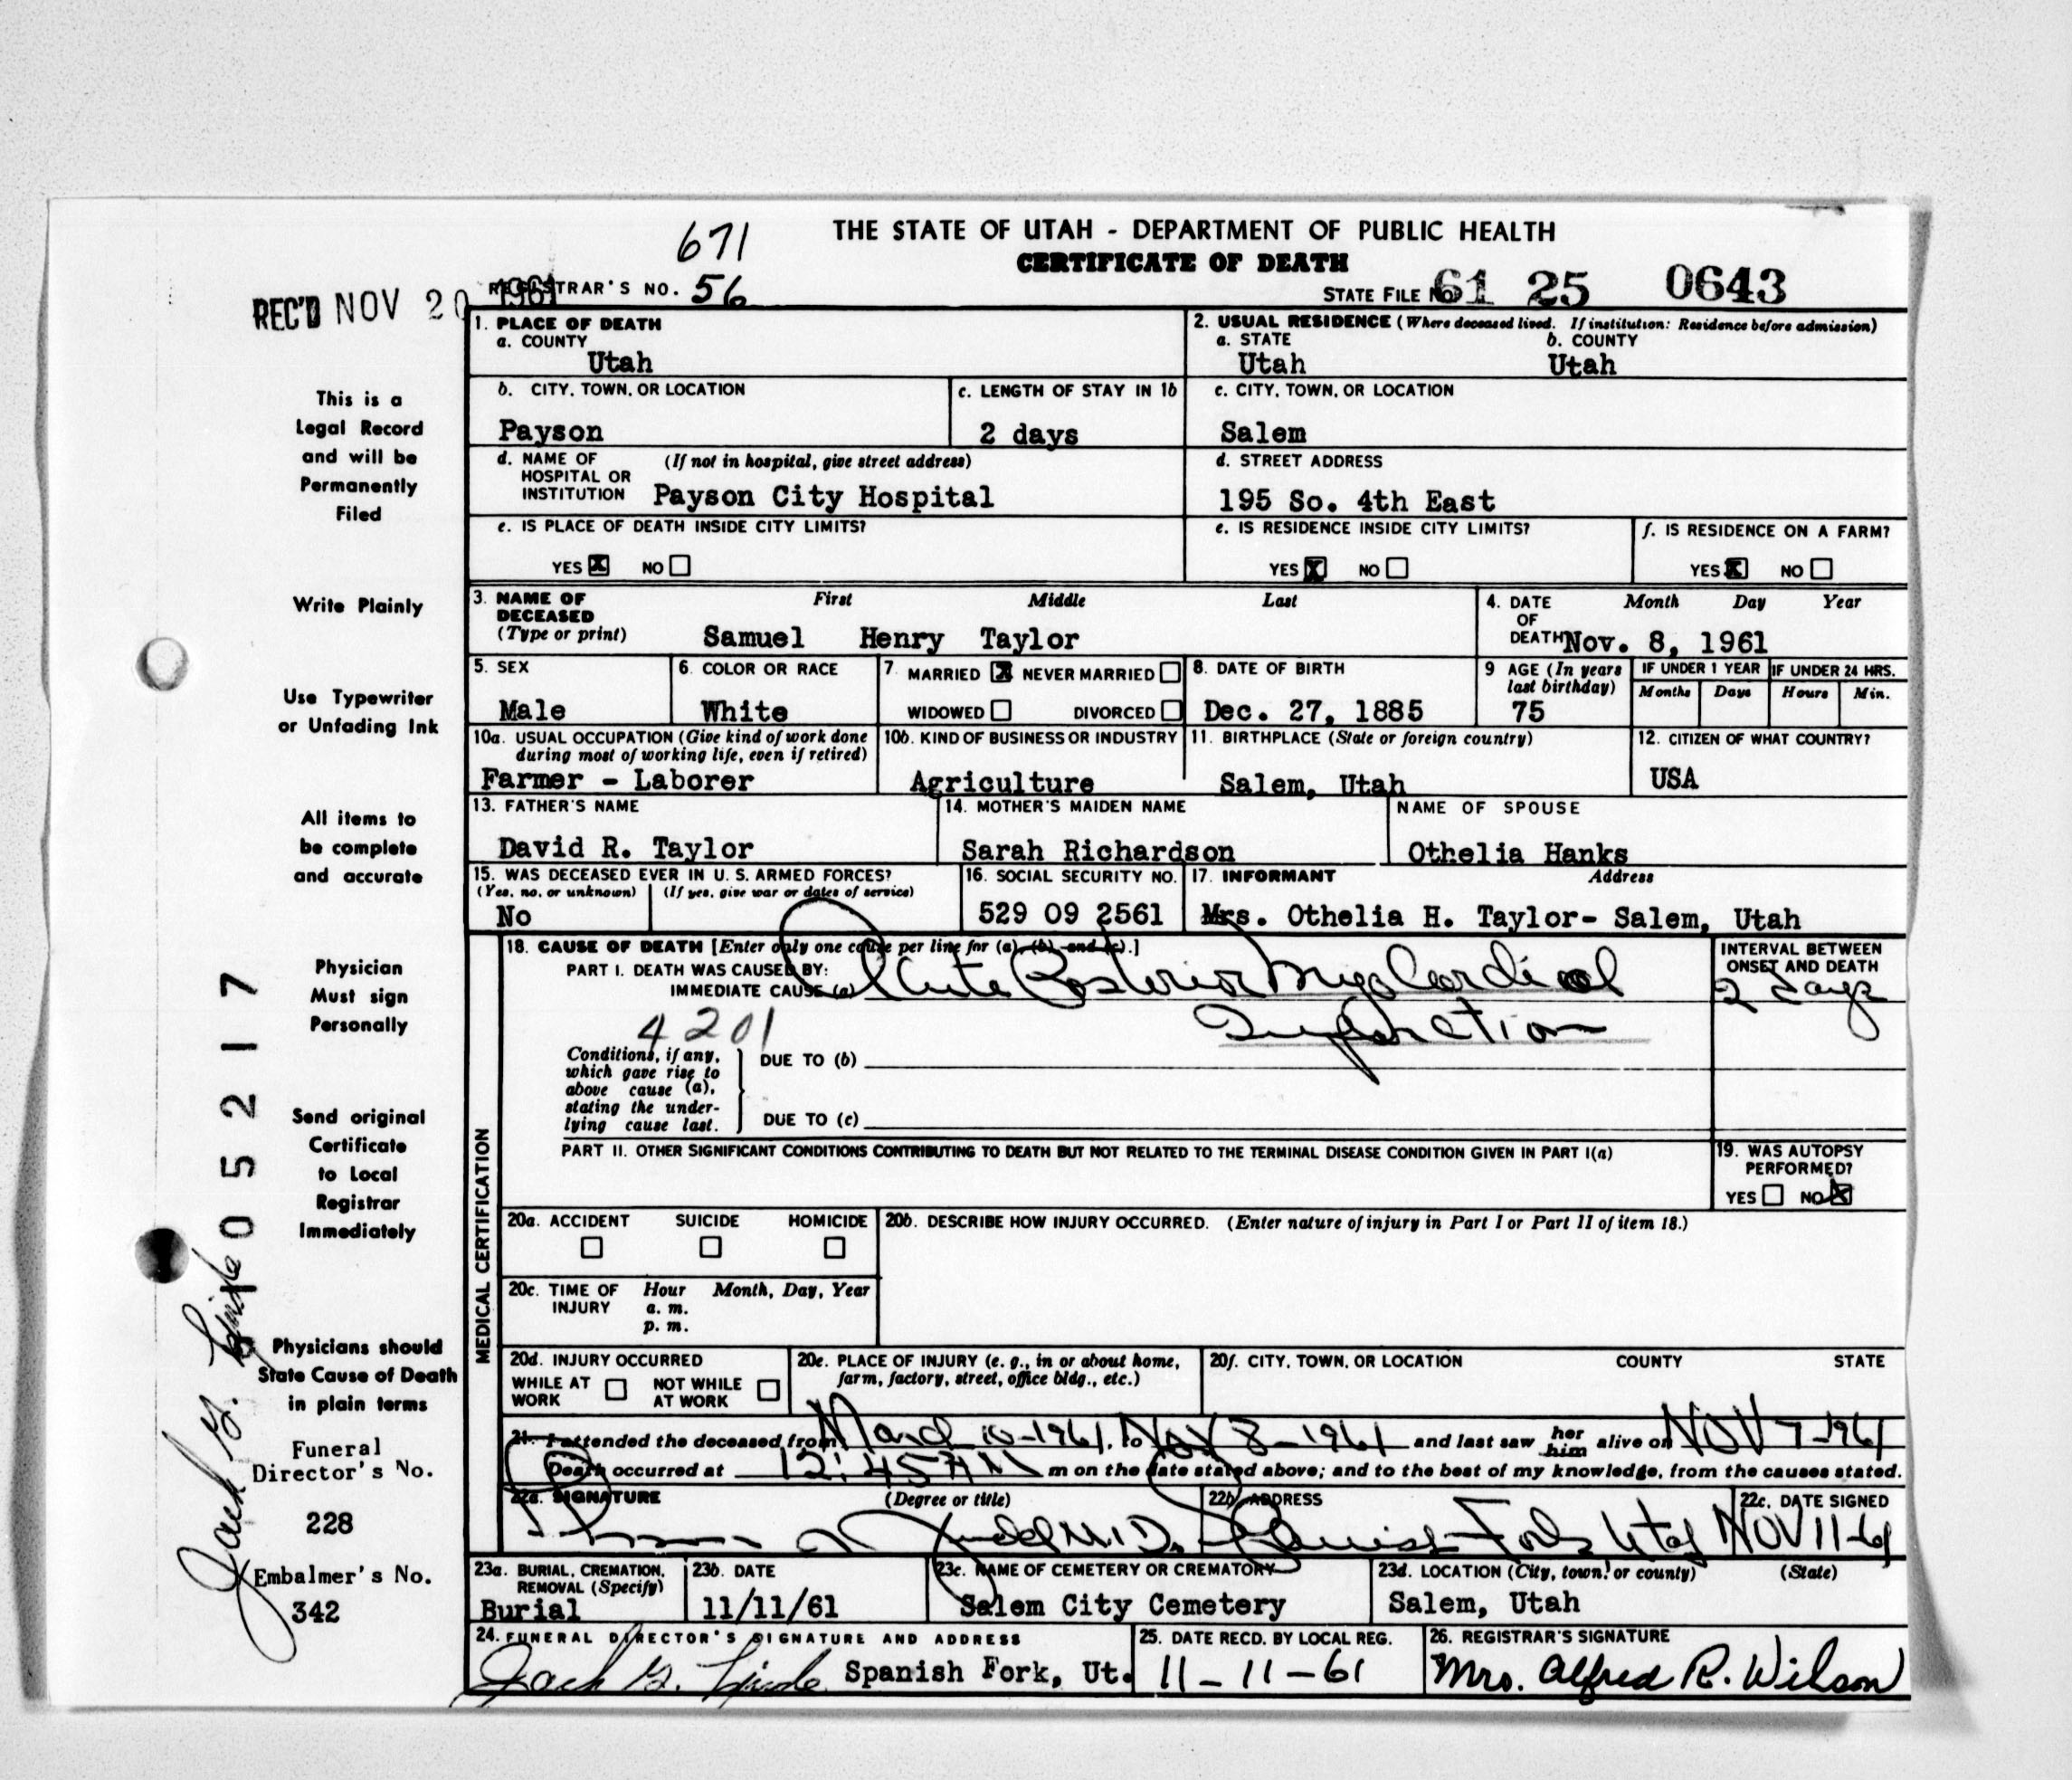 671
THE STATE OF UTAH - DEPARTMENT OF PUBLIC HEALTH
CERTIFICATE OF DEATH
REC'D NOV 20 1961
REGISTRAR'S NO. 56
STATE FILE NO. 61 25 0643
1. PLACE OF DEATH
a. COUNTY
Utah
2. USUAL RESIDENCE (Where deceased lived. If institution: Residence before admission)
a. STATE b. COUNTY
Utah Utah
b. CITY, TOWN, OR LOCATION
Payson
c. LENGTH OF STAY IN 1b
2 days
c. CITY, TOWN, OR LOCATION
Salem
d. NAME OF (If not in hospital, give street address)
HOSPITAL OR
INSTITUTION Payson City Hospital
d. STREET ADDRESS
195 So. 4th East
e. IS PLACE OF DEATH INSIDE CITY LIMITS?
YES X NO
e. IS RESIDENCE INSIDE CITY LIMITS?
YES X NO
f. IS RESIDENCE ON A FARM?
YES X NO
3. NAME OF First Middle Last
DECEASED
(Type or print) Samuel Henry Taylor
4. DATE Month Day Year
OF
DEATH Nov. 8, 1961
5. SEX
Male
6. COLOR OR RACE
White
7. MARRIED X NEVER MARRIED
WIDOWED DIVORCED
8. DATE OF BIRTH
Dec. 27, 1885
9 AGE (In years
last birthday)
75
IF UNDER 1 YEAR
Months Days
IF UNDER 24 HRS.
Hours Min.
10a. USUAL OCCUPATION (Give kind of work done
during most of working life, even if retired)
Farmer - Laborer
10b. KIND OF BUSINESS OR INDUSTRY
Agriculture
11. BIRTHPLACE (State or foreign country)
Salem, Utah
12. CITIZEN OF WHAT COUNTRY?
USA
13. FATHER'S NAME
David R. Taylor
14. MOTHER'S MAIDEN NAME
Sarah Richardson
NAME OF SPOUSE
Othelia Hanks
15. WAS DECEASED EVER IN U. S. ARMED FORCES?
(Yes, no, or unknown) (If yes, give war or dates of service)
No
16. SOCIAL SECURITY NO.
529 09 2561
17. INFORMANT Address
Mrs. Othelia H. Taylor- Salem, Utah
MEDICAL CERTIFICATION
18. CAUSE OF DEATH [Enter only one cause per line for (a), (b), and (c).]
PART I. DEATH WAS CAUSED BY:
IMMEDIATE CAUSE (a) Acute Posterior Myocardial
Infarction
4201
INTERVAL BETWEEN
ONSET AND DEATH
2 days
Conditions, if any,
which gave rise to
above cause (a),
stating the under-
lying cause last.
DUE TO (b)
DUE TO (c)
PART II. OTHER SIGNIFICANT CONDITIONS CONTRIBUTING TO DEATH BUT NOT RELATED TO THE TERMINAL DISEASE CONDITION GIVEN IN PART I(a)
19. WAS AUTOPSY
PERFORMED?
YES NO X
20a. ACCIDENT SUICIDE HOMICIDE
20b. DESCRIBE HOW INJURY OCCURRED. (Enter nature of injury in Part I or Part II of item 18.)
20c. TIME OF Hour Month, Day, Year
INJURY a. m.
p. m.
20d. INJURY OCCURRED
WHILE AT NOT WHILE
WORK AT WORK
20e. PLACE OF INJURY (e. g., in or about home,
farm, factory, street, office bldg., etc.)
20f. CITY, TOWN, OR LOCATION COUNTY STATE
21. I attended the deceased from March 10-1961, to Nov 8-1961 and last saw her him alive on NOV 7-1961
Death occurred at 12:45 AM m on the date stated above; and to the best of my knowledge, from the causes stated.
22a. SIGNATURE (Degree or title)
Judd M.D.
22b. ADDRESS
Spanish Fork Utah
22c. DATE SIGNED
NOV 11-61
23a. BURIAL, CREMATION,
REMOVAL (Specify)
Burial
23b. DATE
11/11/61
23c. NAME OF CEMETERY OR CREMATORY
Salem City Cemetery
23d. LOCATION (City, town, or county) (State)
Salem, Utah
24. FUNERAL DIRECTOR'S SIGNATURE AND ADDRESS
Jack Spanish Fork, Ut.
25. DATE RECD. BY LOCAL REG.
11-11-61
26. REGISTRAR'S SIGNATURE
Mrs. Alfred R. Wilson
This is a
Legal Record
and will be
Permanently
Filed
Write Plainly
Use Typewriter
or Unfading Ink
All items to
be complete
and accurate
Physician
Must sign
Personally
Send original
Certificate
to Local
Registrar
Immediately
Physicians should
State Cause of Death
in plain terms
Funeral
Director's No.
228
Embalmer's No.
342
Jack
05217